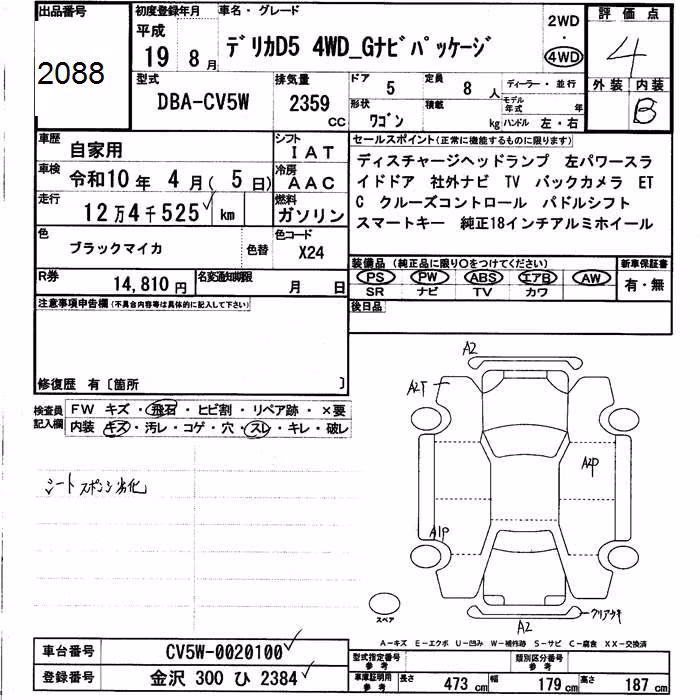 出品番号
2088
初度登録年月
平成
19 8月
車名・グレード
デリカD5 4WD_Gナビパッケージ
2WD
・
4WD
評価点
4
外装 内装
B
型式
DBA-CV5W
排気量
2359
CC
ドア
5
定員
8人
ディーラー・並行
形状
ワゴン
積載
kg
モデル年式
年
ハンドル 左・右
車歴
自家用
シフト
IAT
車検
令和10年 4月( 5日)
冷房
AAC
走行
12万4千525 km
燃料
ガソリン
色
ブラックマイカ
色替
色コード
X24
R券
14,810円
名変通知期限
月 日
セールスポイント(正常に機能するものに限ります)
ディスチャージヘッドランプ 左パワースラ
イドドア 社外ナビ TV バックカメラ ET
C クルーズコントロール パドルシフト
スマートキー 純正18インチアルミホイール
装備品 (純正品に限り〇をつけてください)
PS PW ABS エアB AW
SR ナビ TV カワ
新車保証書
有・無
後日品
注意事項申告欄 (不具合内容等は具体的に記入して下さい)
修復歴 有〔箇所 〕
検査員
記入欄
FW キズ・飛石・ヒビ割・リペア跡・×要
内装 キズ・汚レ・コゲ・穴・スレ・キレ・破レ
シートスポンジ劣化
A2
A2T
A2P
A1P
A2
クリアハゲ
スペア
A-キズ E-エクボ U-凹み W-補修跡 S-サビ C-腐食 XX-交換済
車台番号
CV5W-0020100
登録番号
金沢 300 ひ 2384
型式指定番号
参考
類別区分番号
参考
車庫証明用
参考
長さ 473cm 幅 179cm 高さ 187cm